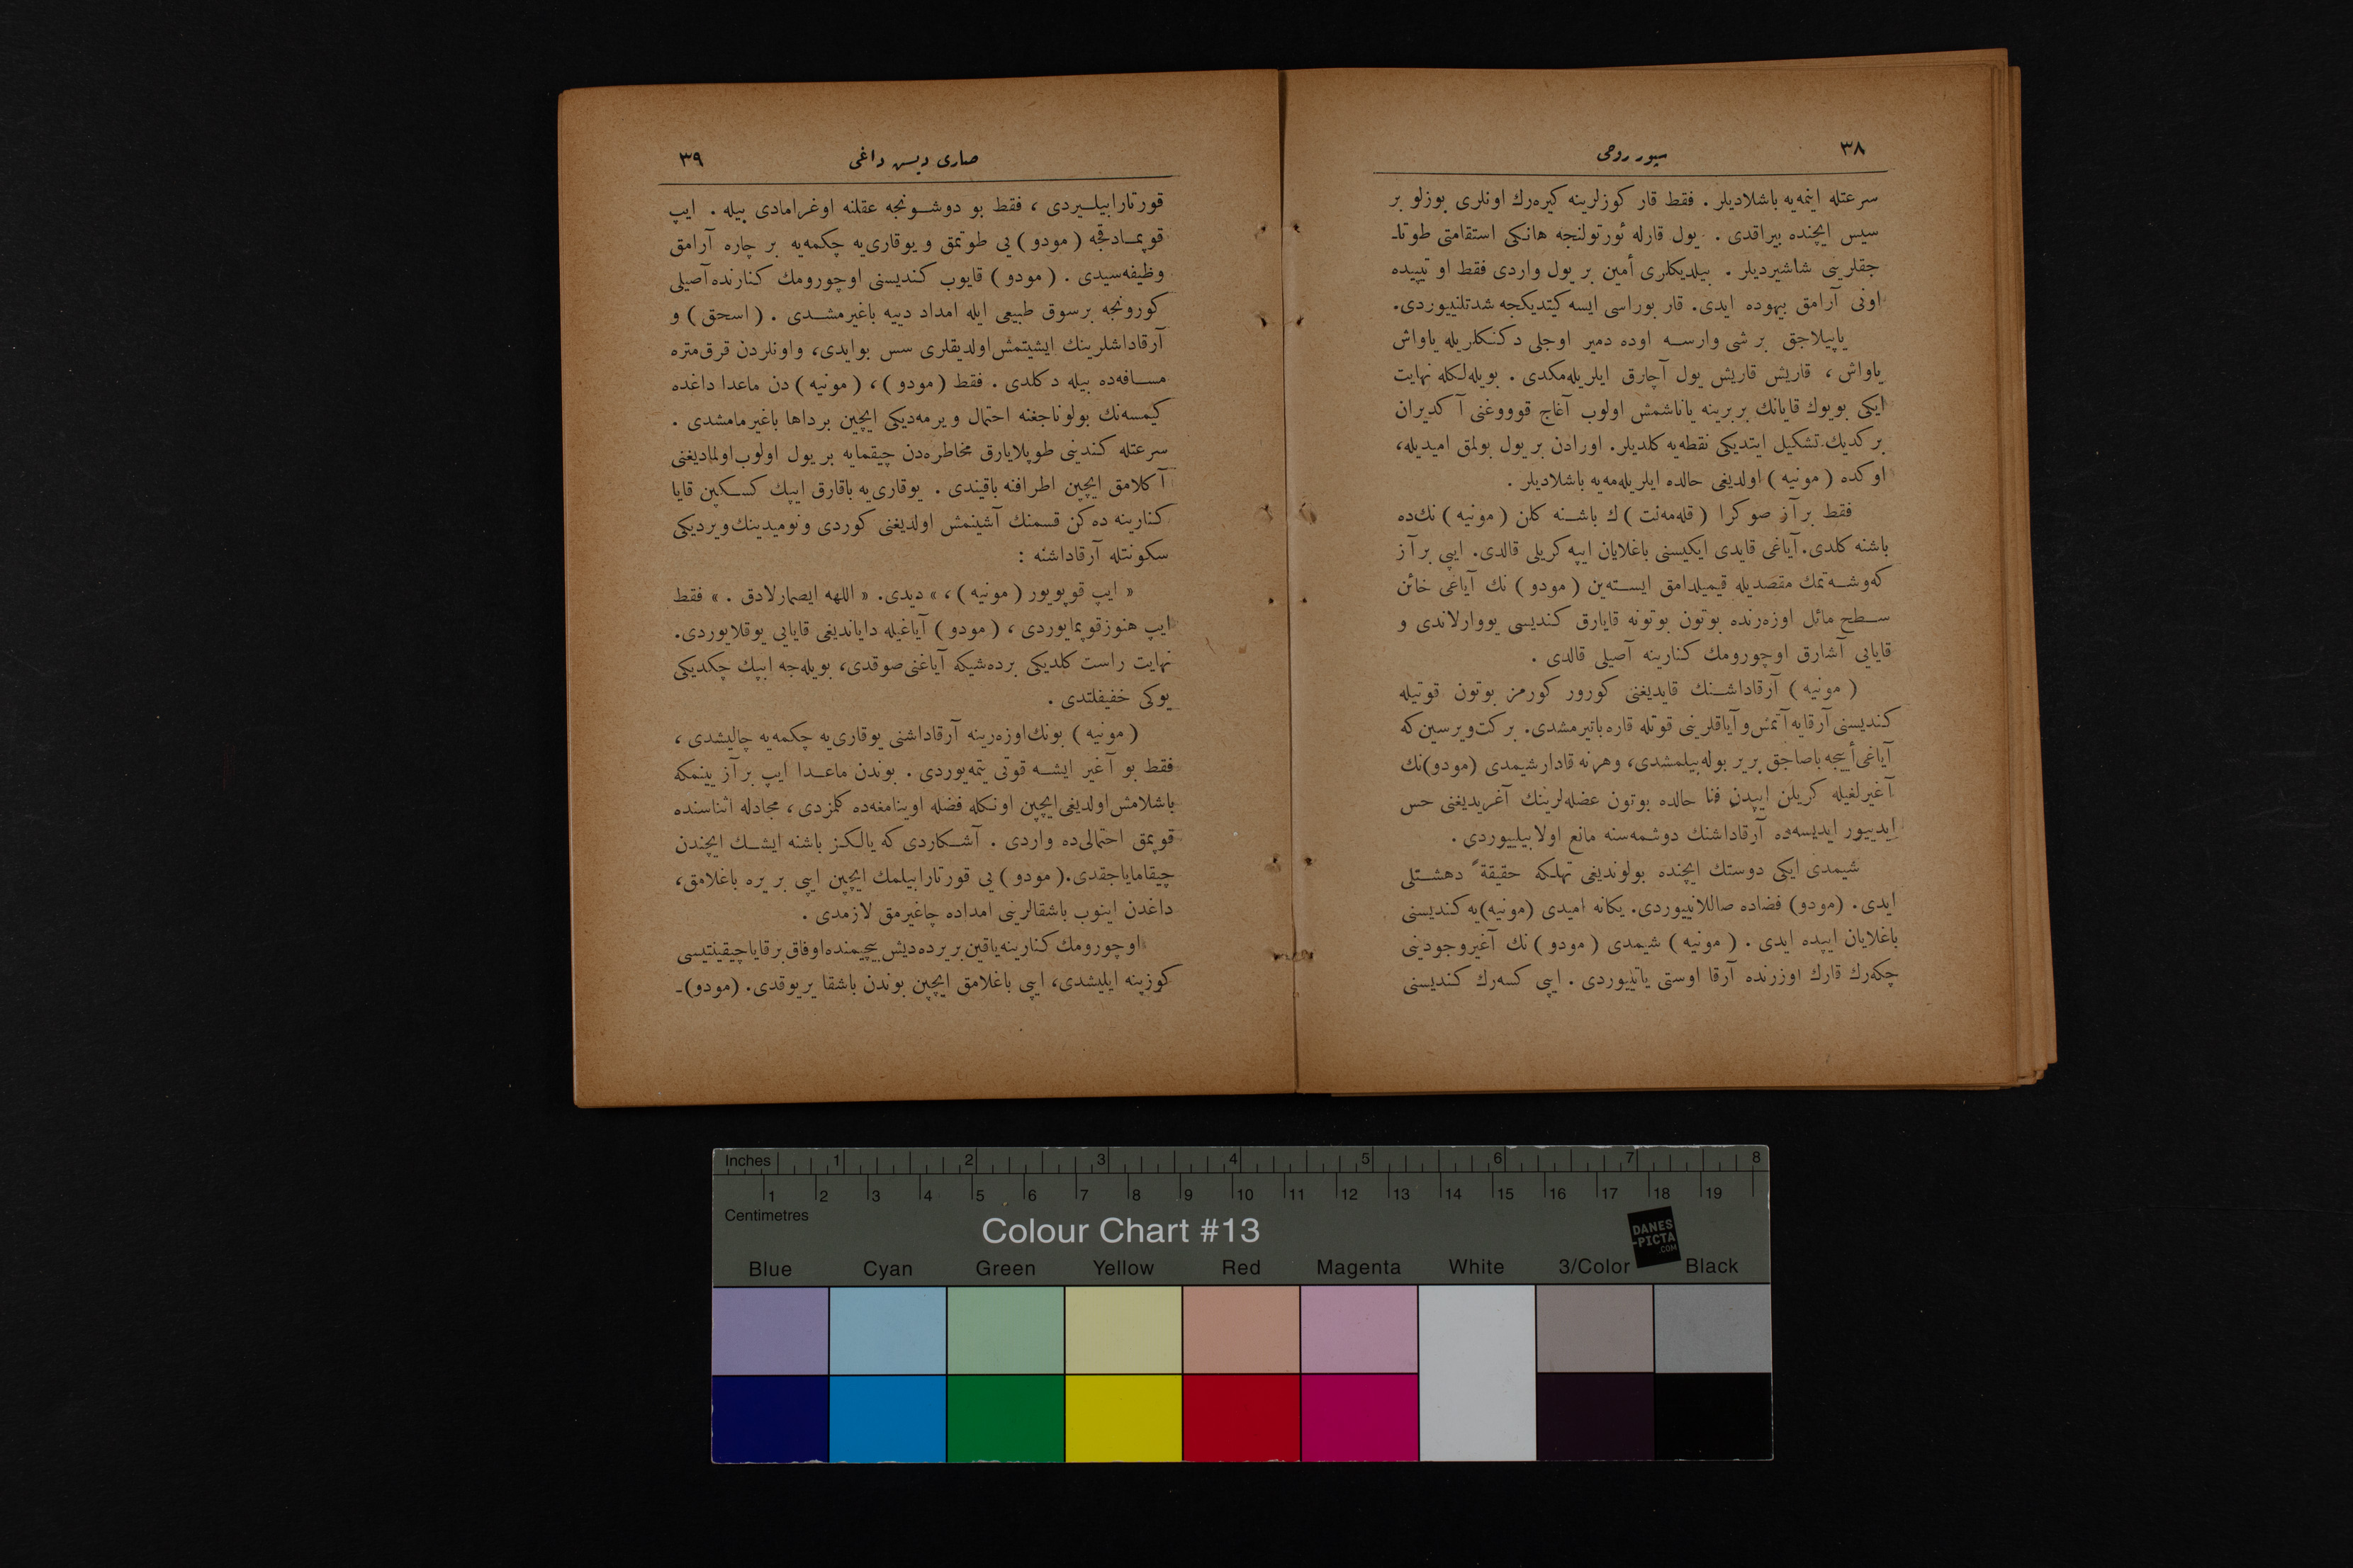 ٣٨
سيور روحی
سرعتله اینمه‌یه باشلادیلر . فقط قار کوزلرینه کیره‌رك اونلری بوزلو بر
سیس ایچنده بیراقدی . یول قارله ئورتولنجه هانکی استقامتی طوتا۔
جقلرینی شاشیردیلر . بیلدیکلری أمین بر یول واردی فقط او تیپیده
اونی آرامق بیهوده ایدی. قار بوراسی ایسه کیتدیکجه شدتلنیوردی.
یاپیلاجق بر شی وارسه اوده دمیر اوجلی دکنکلریله یاواش
یاواش ، قاریش قاریش یول آچارق ایلریله‌مکدی . بویله‌لکله نهایت
ایکی بویوك قایانك بربرینه یاناشمش اولوب آغاج قوووغنی آکدیران
بر کدیك تشکیل ایتدیکی نقطه‌یه کلدیلر. اورادن بر یول بولمق امیدیله،
اوکده ( مونیه ) اولدیغی حالده ایلریله‌مه‌یه باشلادیلر .
فقط بر آز صوکرا ( قله‌مه‌نت ) ك باشنه کلن ( مونیه ) نك‌ده
باشنه کلدی. آیاغی قایدی ایکیسنی باغلایان ایپه کریلی قالدی. ایپی بر آز
کوشه‌تمك مقصدیله قیمیلدامق ایسته‌ین ( مودو ) نك آیاغی خائن
سطح مائل اوزه‌رنده بوتون بوتونه قایارق کندیسی یووارلاندی و
قایایی آشارق اوچورومك کنارینه آصیلی قالدی .
( مونیه ) آرقاداشنك قایدیغنی کورور کورمز بوتون قوتیله
کندیسنی آرقایه آتمش و آیاقلرینی قوتله قاره باتیرمشدی. برکت ویرسین که
آیاغی أییجه باصاجق بر یر بوله بیلمشدی، وهر نه قادار شیمدی (مودو)نك
آغیرلغیله کریلن ایپدن فنا حالده بوتون عضله‌لرینك آغریدیغنی حس
ایدییور ایدیسه‌ده آرقاداشنك دوشمه‌سنه مانع اولابیلییوردی .
شیمدی ایکی دوستك ایچنده بولوندیغی تهلکه حقیقةً دهشتلی
ایدی . (مودو) فضاده صاللانییوردی. یکانه امیدی (مونیه) یه کندیسنی
باغلایان ایپده ایدی . ( مونیه ) شیمدی ( مودو ) نك آغیر وجودینی
چکه‌رك قارك اوزرنده آرقا اوستی یاتییوردی . ایپی کسه‌رك کندیسنی
صاری دیس داغی
٣٩
قورتارابیلیردی ، فقط بو دوشونجه عقلنه اوغرامادی بیله . ایپ
قوپمادقجه ( مودو ) یی طوتمق و یوقاری‌یه چکمه‌یه بر چاره آرامق
وظیفه‌سیدی . ( مودو ) قایوب کندیسنی اوچورومك کنارنده آصیلی
کورونجه بر سوق طبیعی ایله امداد دییه باغیرمشدی . ( اسحق ) و
آرقاداشلرینك ایشیتمش اولدیقلری سس بو ایدی، و اونلردن قرق متره
مسافه‌ده بیله دکلدی . فقط ( مودو ) ، ( مونیه ) دن ماعدا داغده
کیمسه‌نك بولوناجغنه احتمال ویرمه‌دیکی ایچین بر داها باغیرمامشدی .
سرعتله کندینی طوپلایارق مخاطره‌دن چیقمایه بر یول اولوب اولمادیغنی
آکلامق ایچین اطرافنه باقیندی . یوقاری‌یه باقارق ایپك کسکین قایا
کنارینه ده‌کن قسمنك آشینمش اولدیغنی کوردی و نومیدینك ویردیکی
سکونتله آرقاداشنه :
« ایپ قوپویور ( مونیه ) ، » دیدی. « اللهه ایصمارلادق . » فقط
ایپ هنوز قوپمایوردی ، ( مودو ) آیاغیله دایاندیغی قایایی یوقلایوردی.
نهایت راست کلدیکی بر ده‌شیکه آیاغنی صوقدی، بویله‌جه ایپك چکدیکی
یوکی خفیفلتدی .
( مونیه ) بونك اوزه‌رینه آرقاداشنی یوقاری‌یه چکمه‌یه چالیشدی ،
فقط بو آغیر ایشه قوتی یتمه‌یوردی . بوندن ماعدا ایپ بر آز یینمکه
باشلامش اولدیغی ایچین اونکله فضله اوینامغه‌ده کلمزدی ، مجادله اثناسنده
قوپمق احتمالی‌ده واردی . آشکاردی که یالکز باشنه ایشك ایچندن
چیقامایاجقدی. ( مودو ) یی قورتارابیلمك ایچین ایپی بر یره باغلامق،
داغدن اینوب باشقالرینی امداده چاغیرمق لازمدی .
اوچورومك کنارینه یاقین بر یرده دیش بیچیمنده اوفاق بر قایا چیقینتیسی
کوزینه ایلیشدی، ایپی باغلامق ایچین بوندن باشقا یر یوقدی. (مودو)۔
Inches 1 2 3 4 5 6 7 8
1 2 3 4 5 6 7 8 9 10 11 12 13 14 15 16 17 18 19
Centimetres
Colour Chart #13
DANES
-PICTA
.COM
Blue Cyan Green Yellow Red Magenta White 3/Color Black